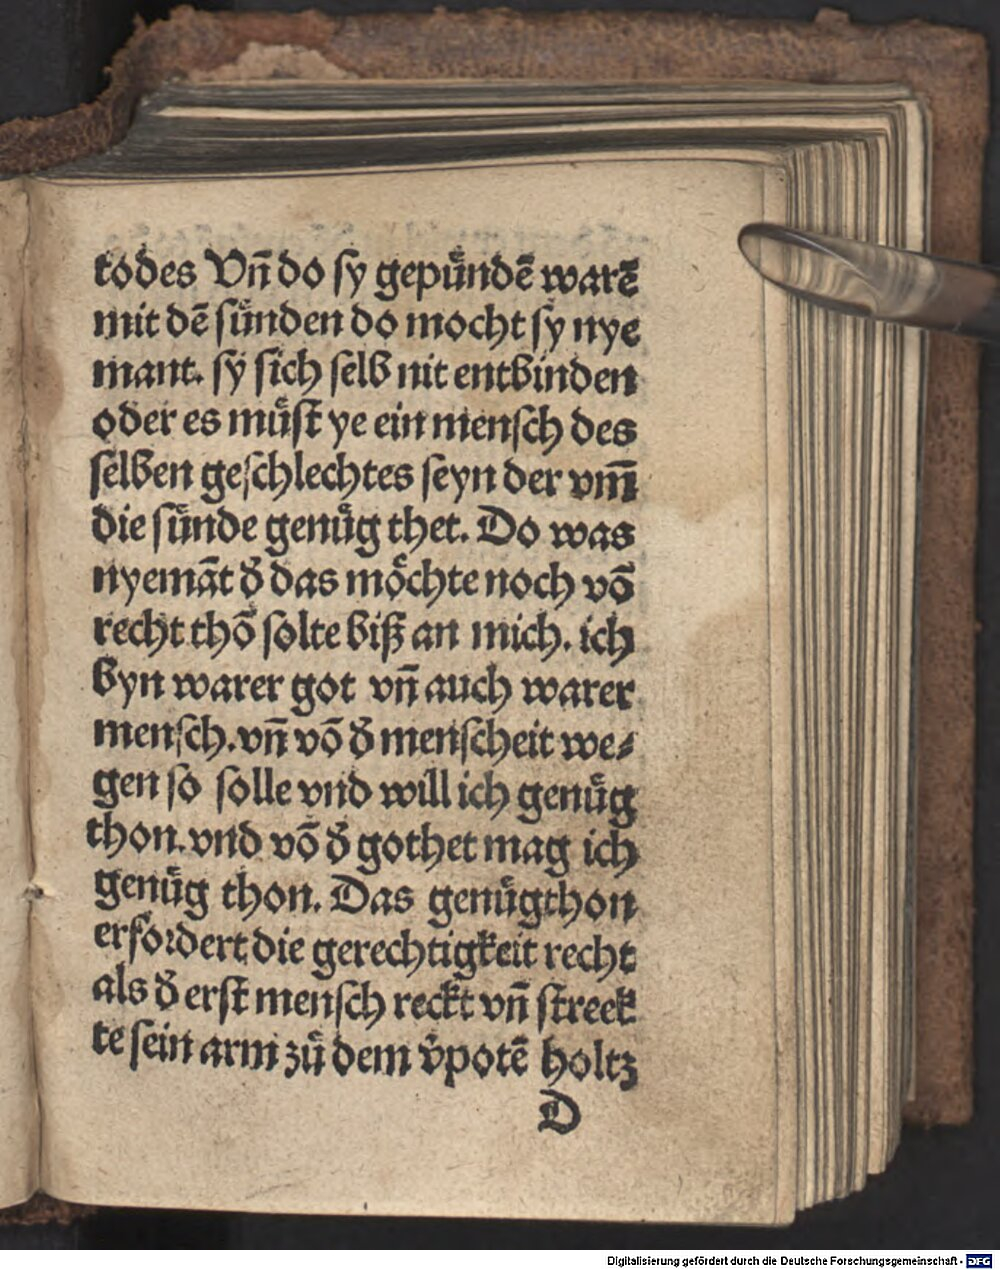 todes Vn̄ do sy gepuͤndē warē
mit dē suͤnden do mocht sy nye
mant. sy̆ sich selb nit entbinden
oder es muͤst ye ein mensch des
selben geschlechtes seyn der vm̄
die suͤnde genuͤg thet. Do was
nyemāt d̕ das moͤchte noch vō
recht thō solte biß an mich. ich
byn warer got vn̄ auch warer
mensch. vn̄ vō d̕ menscheit we⸗
gen so solle vnd will ich genuͤg
thon. vnd vō d̕ gothet mag ich
genuͤg thon. Das genuͤgthon
erfordert die gerechtigkeit recht
als d̕ erst mensch reckt vn̄ streck
te sein arm zuͤ dem v̕potē holtz
D
Digitalisierung gefördert durch die Deutsche Forschungsgemeinschaft - DFG